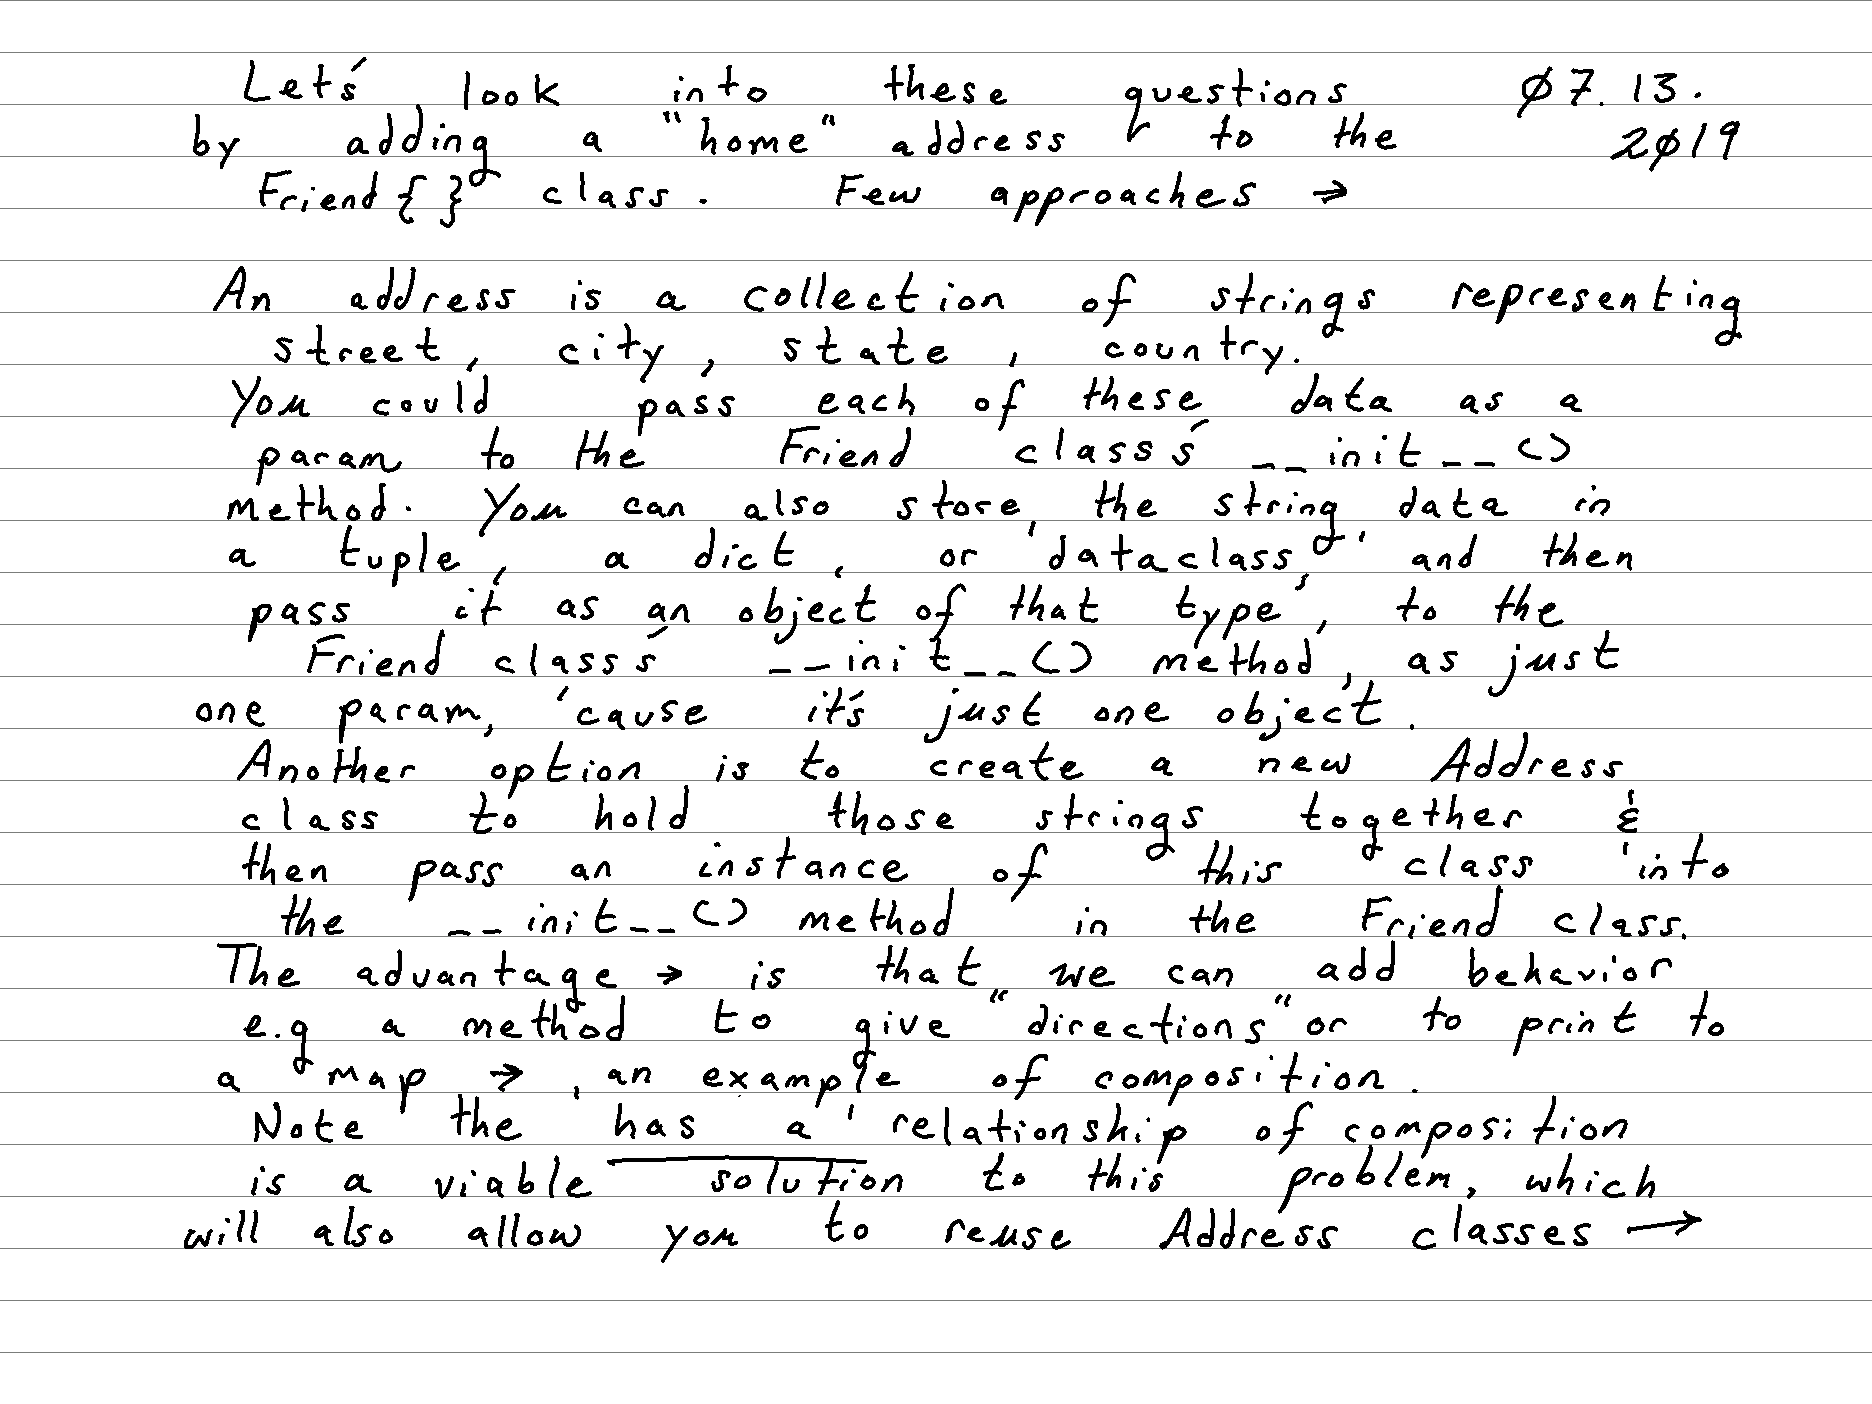 Let's look into these questions ø7. 13.
by adding a "home" address to the 2ø19
Friend { } class. Few approaches →
An address is a collection of strings representing
street, city, state, country.
You could pass each of these data as a
param to the Friend class's __init__()
method. You can also store the string data in
a tuple, a dict, or 'dataclass,' and then
pass it as an object of that type', to the
Friend class's __init__() method, as just
one param, 'cause it's just one object.
Another option is to create a new Address
class to hold those strings together &
then pass an instance of this class into
the __init__() method in the Friend class.
The advantage → is that we can add behavior
e.g a method to give "directions" or to print to
a map →, an example of composition.
Note the 'has a' relationship of composition
is a viable solution to this problem, which
will also allow you to reuse Address classes →